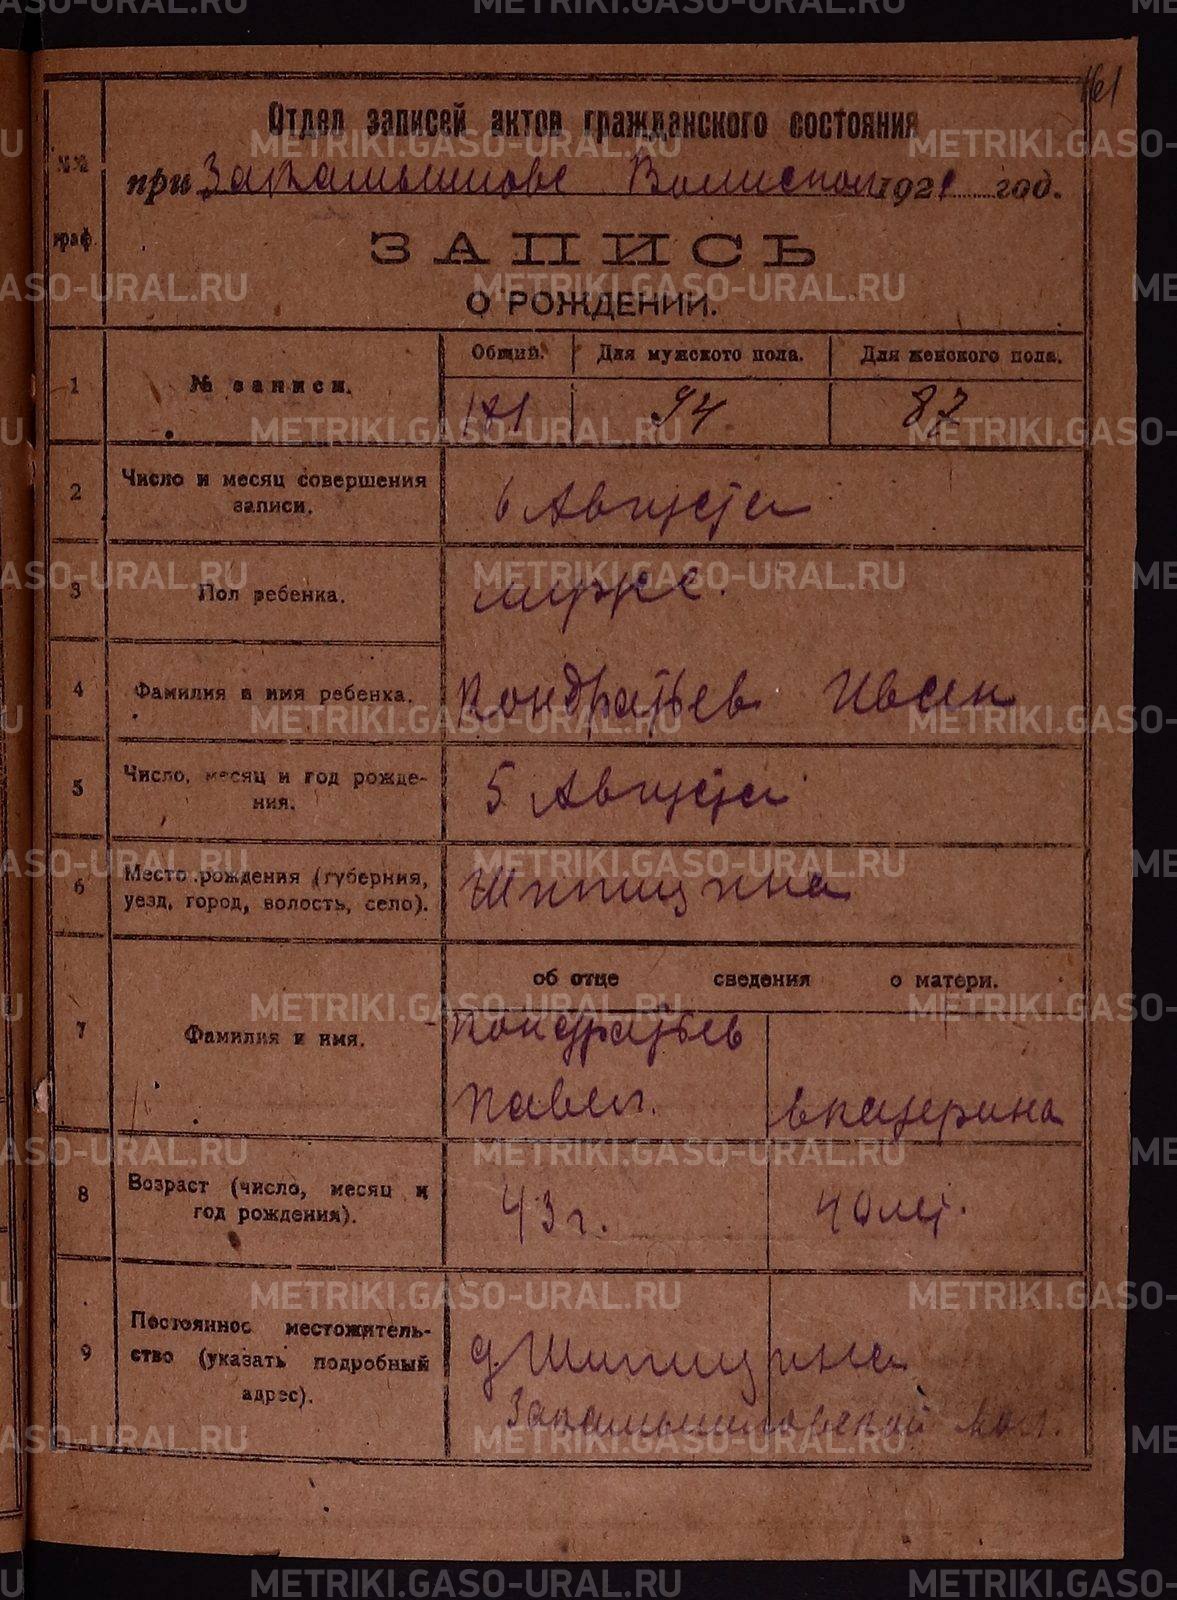 161
Отдел записей актов гражданского состояния
№№ граф.
при Закамышлове Волисполк 1921 год.
ЗАПИСЬ
О РОЖДЕНИИ.
Общий. Для мужского пола. Для женского пола.
1 № записи. 181 94 87
2 Число и месяц совершения
записи. 6 Августа
3 Пол ребенка. мужс.
4 Фамилия и имя ребенка. Кондратьев
5 Число, месяц и год рожде-
ния. 5 Августа
6 Место рождения (губерния,
уезд, город, волость, село). Шипицина
об отце сведения о матери.
7 Фамилия и имя. Кондратьев
Павел. Екатерина
8 Возраст (число, месяц и
год рождения). 43 г. 40 лет.
9 Постоянное местожитель-
ство (указать подробный
адрес). д. Шипицина
Закамышловской вол.
METRIKI.GASO-URAL.RU